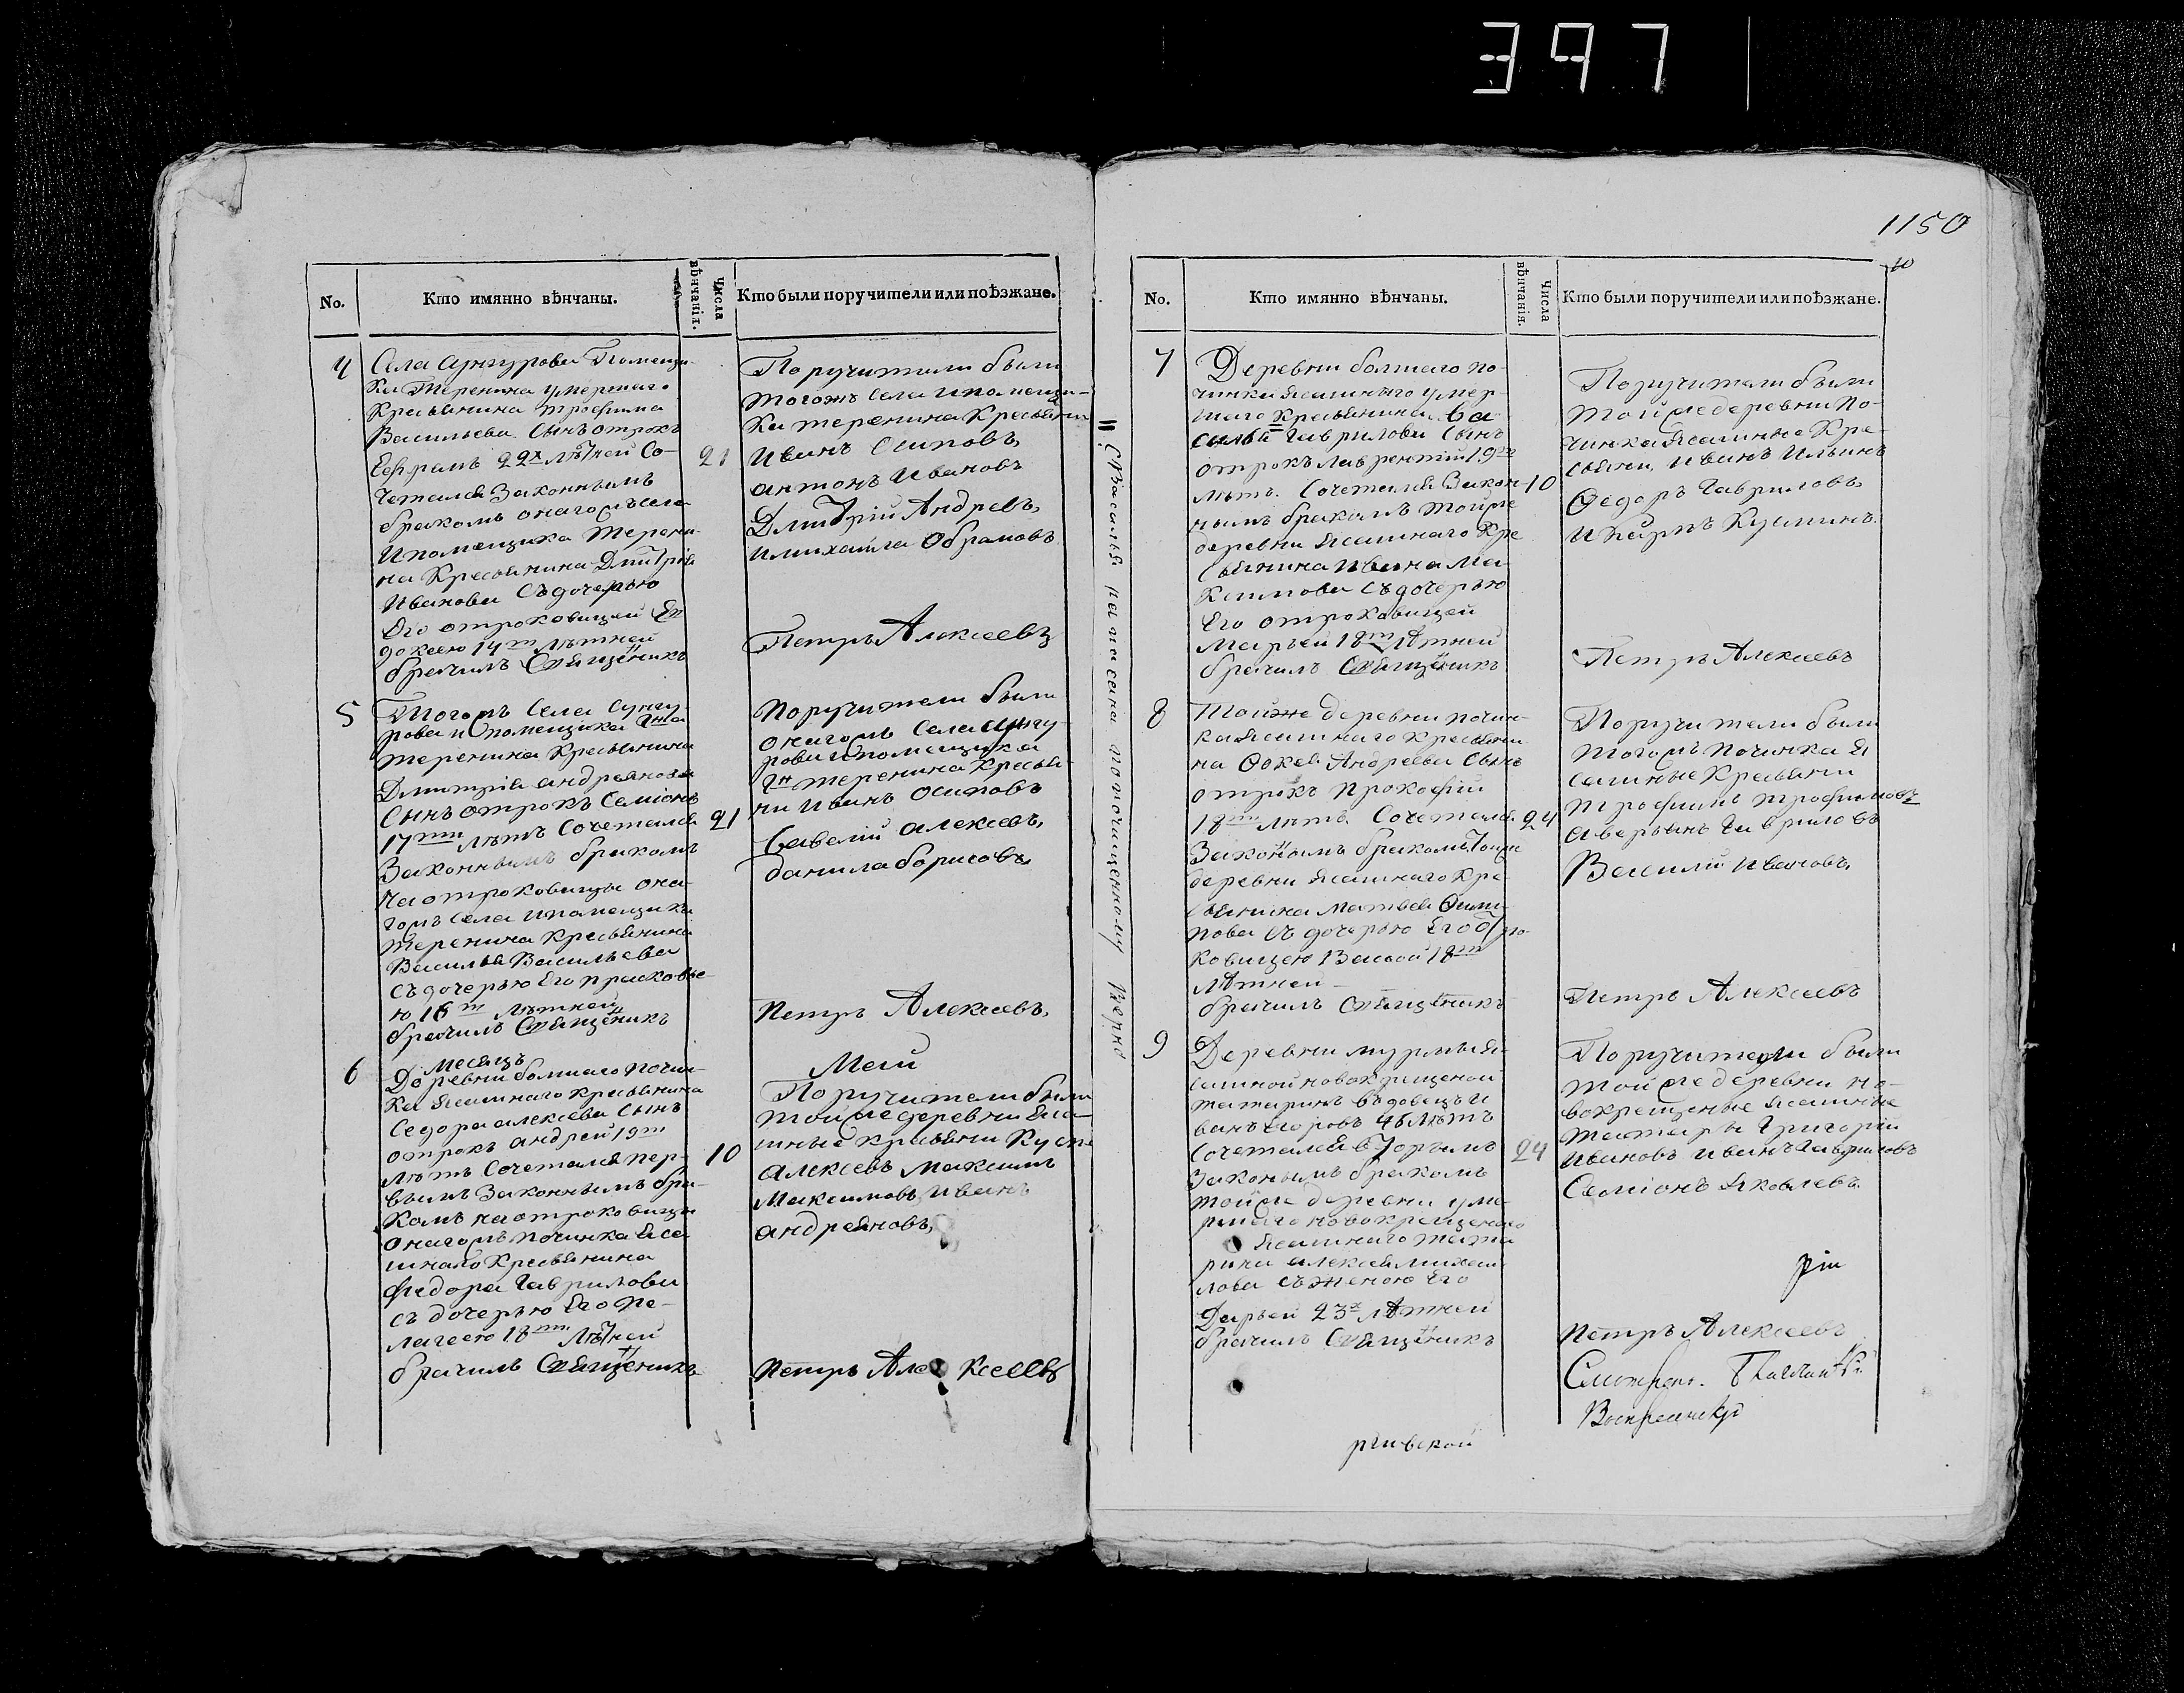 397
1150
10
No.
Кто имянно вѣнчаны.
Числа вѣнчанія.
Кто были поручители или поѣзжане.
4
Села Сунгурова Помещи-
ка Теренина умершаго
Крестьянина Трофима
Васильева Сынъ отрокъ
Ефрамъ 22х лѣтней Со-
четался Законнымъ
бракомъ онагожъ села
Ипомещика Терени-
на Крестьянина Дмитрія
Иванова Съдочерью
Его отроковицей Ев
докеею 17т лѣтней
брачилъ Священникъ
21
Поручители были
тогожъ села ипомещи-
ка теренина Крестьяни
Иванъ Осиповъ
антонъ Ивановъ
Дмитрій Андреевъ
имихаила Обрамовъ
Петръ Алексеевъ
5
Тогожъ Села Сунгу
рова ипомещика Гна
теренина Крестьянина
Дмитрія андреянова
Сынъ отрокъ Семіонъ
17ти лѣтъ Сочетался
Законнымъ бракомъ
на отроковицы она
гожъ Села ипомещика
теренина Крестьянина
Василья Васильева
съдочерью Его прасковье
ю 16т лѣтней
брачилъ Священникъ
21
поручители были
онагожъ Села Сунгу
рова ипомещика
Гн теренина Крестья-
ни Иванъ Осиповъ
Савелій алексеевъ
данила борисовъ
Петръ Алексеевъ
месяцъ
Маій
6
Деревни болшаго Почин-
ка Ясашнаго Крестьянина
Седора алексеева Сынъ
отрокъ андрей 19т
лѣтъ Сочетался пер-
вымъ Законнымъ бра-
комъ на отроковицы
онагожъ починка Яса
шнаго Крестьянина
Федора Гаврилова
съ дочерью Его Пе-
лагеею 18ти лѣтней
брачилъ Священникъ
10
Поручители были
тойже деревни Яса-
шные крестьяни Кузма
алексеевъ максимъ
Максимовъ Иванъ
андреяновъ
Петръ Алексеевъ
Василья написана по почищенному верно
No.
Кто имянно вѣнчаны.
Числа вѣнчанія.
Кто были поручители или поѣзжане.
7
Деревни болшаго по-
чинка Ясашнаго умер
шаго Крестьянина Ва
силья Гаврилова Сынъ
отрокъ Лаврентій 19ти
лѣтъ Сочетался Закон-
нымъ бракомъ тойже
деревни Ясашнаго Кре
стьянина Ивана Ма
ксимова Съдочерью
Его отроковицей
Марьей 18т лѣтней
брачилъ Священникъ
10
Поручители были
тойже деревни По-
чинка Ясашные Кре-
стьяни Иванъ Ильинъ
Федоръ Гавриловъ
и Карпъ Кузминъ
Петръ Алексеевъ
8
Тойже деревни почин-
ка Ясашнаго Крестьяни
на Фокея Андреева Сынъ
отрокъ Прокофій
18ти лѣтъ Сочетался
Законнымъ бракомъ тойже
деревни Ясашнаго Кре
стьянина Матвея Филип
пова Съ дочерью Его отро-
ковицею Васой 18ти
лѣтней
брачилъ Священникъ
24
Поручители были
тогожъ починка Я
сашные Крестьяни
Трофимъ Трофимовъ
аверьянъ Гавриловъ
Василій Ивановъ
Петръ Алексеевъ
9
Деревни мурзы Я-
сашной новокрещеной
татаринъ въдовецъ И
ванъ 46 лѣтъ
Сочетался вторымъ
Законнымъ бракомъ
тойже деревни уме-
ршаго новокрещенаго
Ясашнаго татар
рина алексея михаи
лова съ женою Его
Дарьей 23х лѣтней
брачилъ Священникъ
24
Поручители были
тойже деревни но-
вокрещеные Ясашные
татары Григорій
Ивановъ Иванъ Гавриловъ
Семіонъ Яковлевъ
рiи
Петръ Алексеевъ
Смотрено.
Воскресенскій